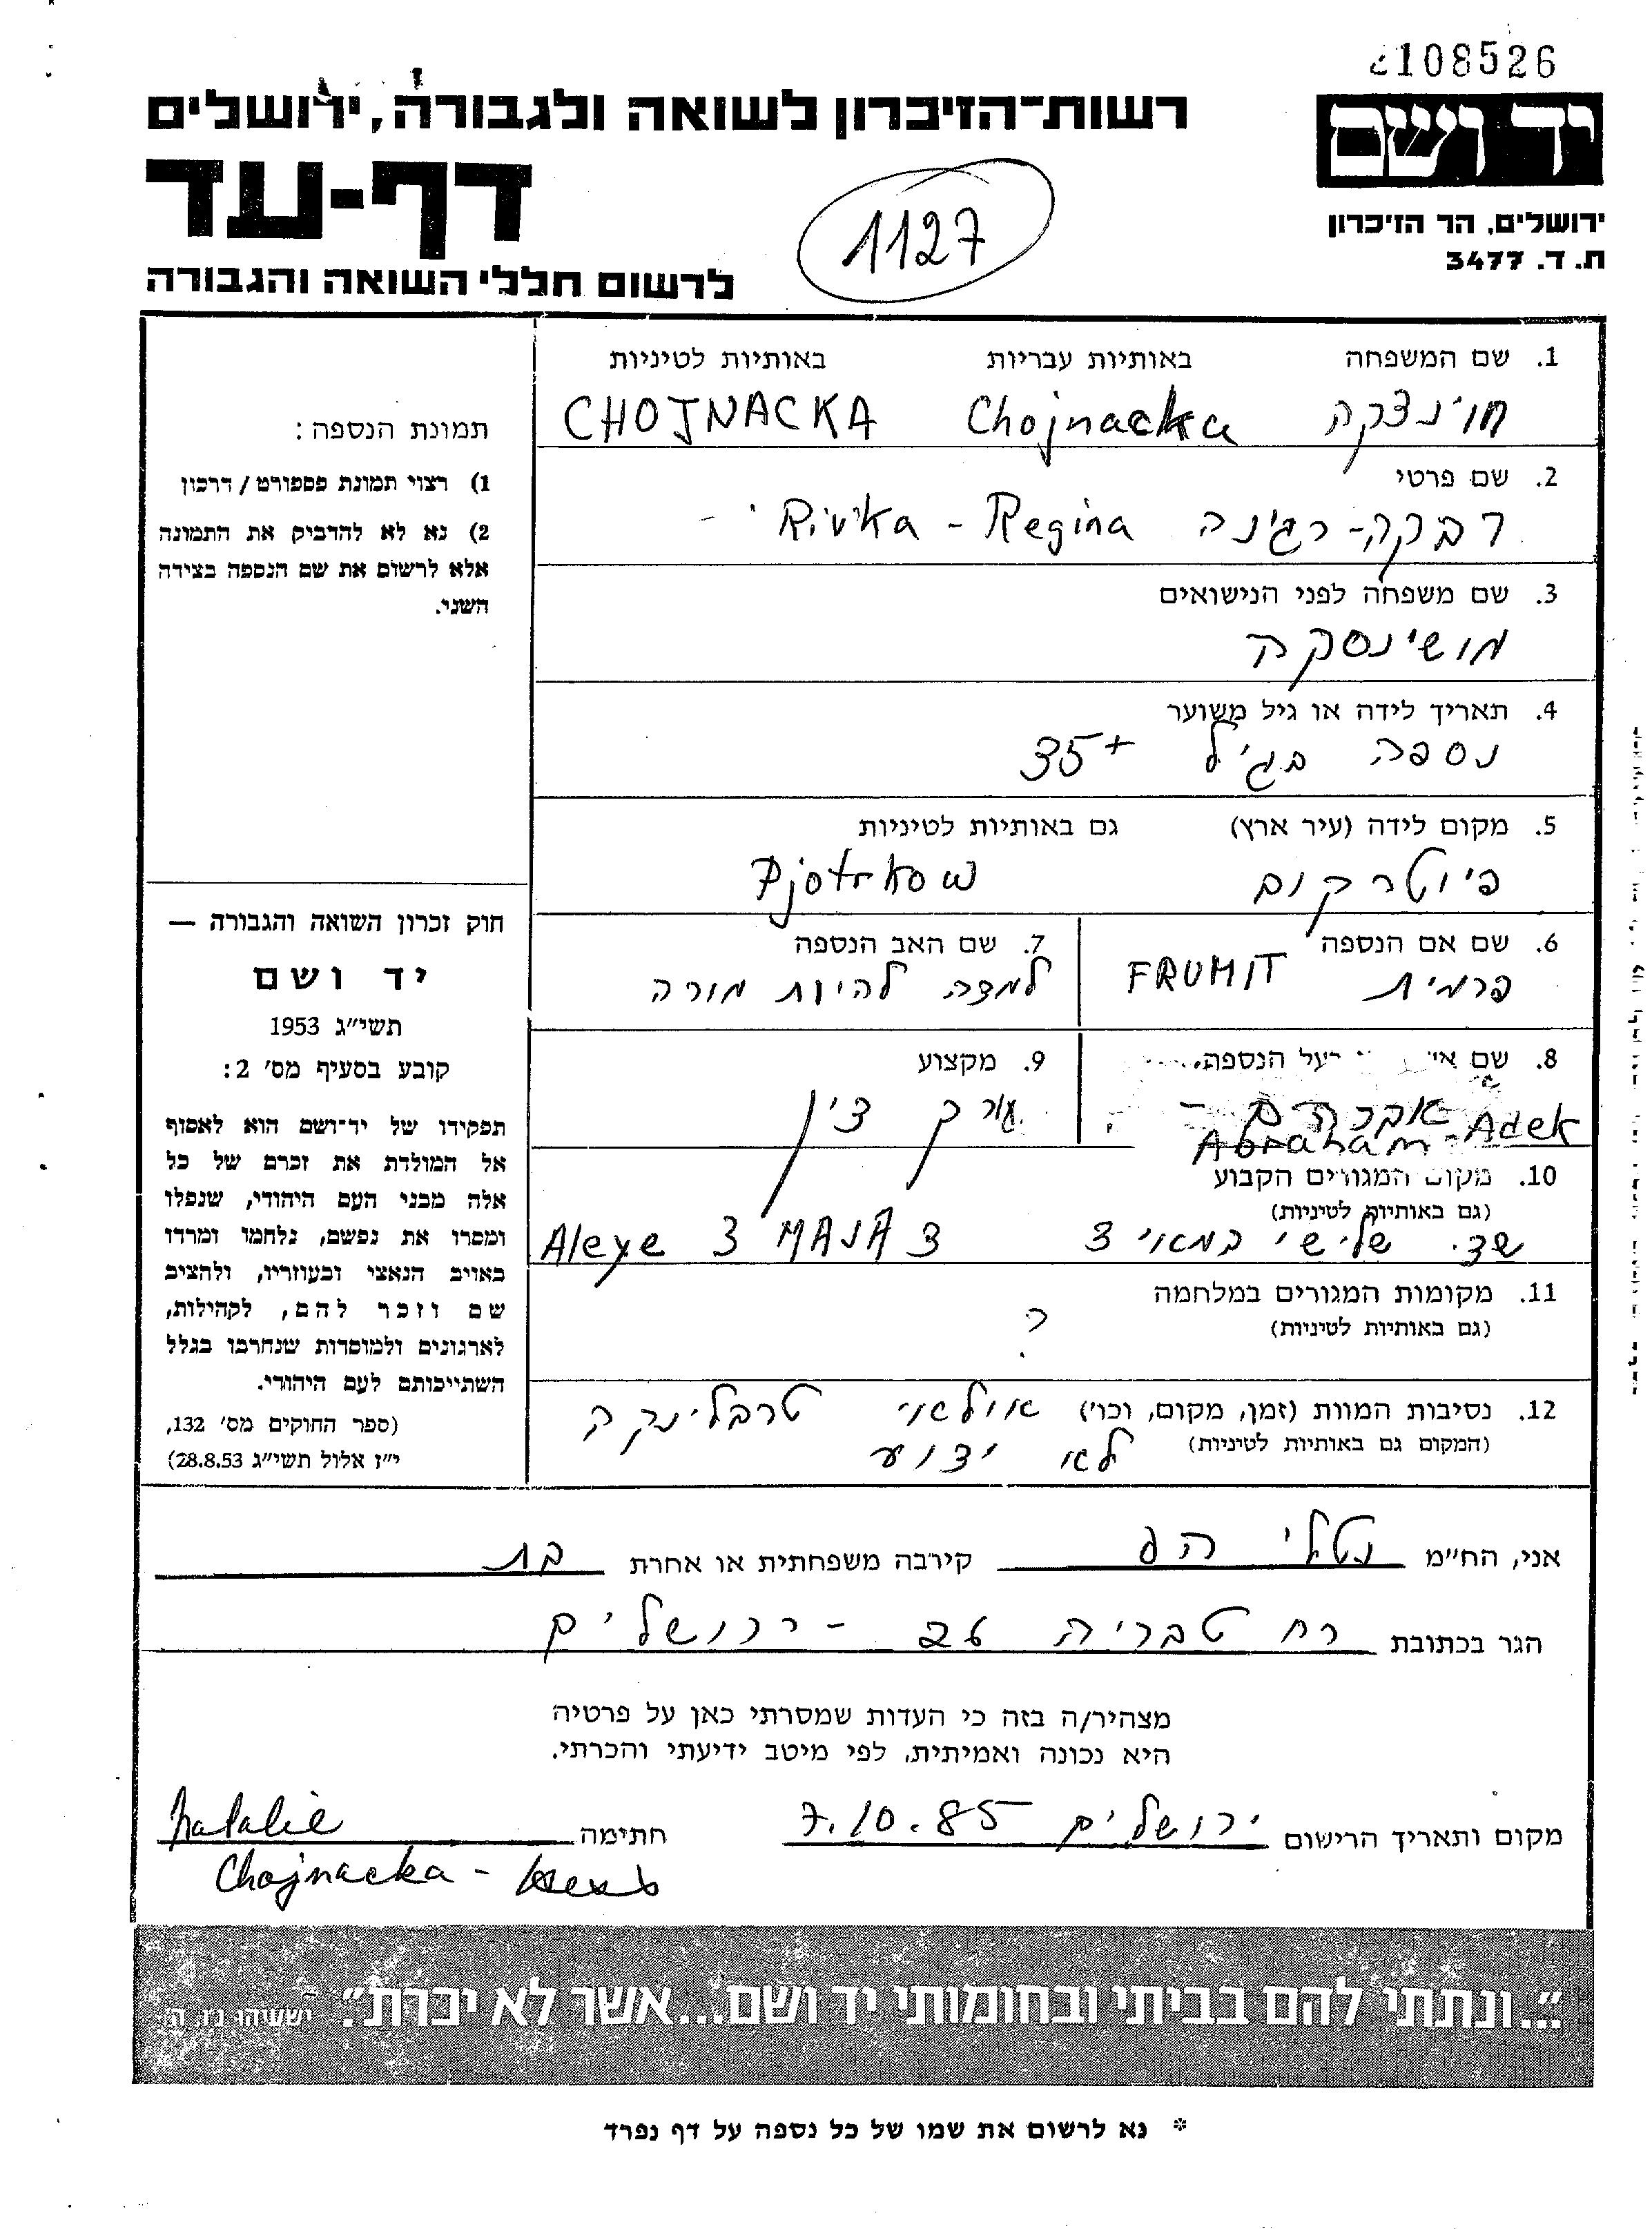 108526
יד ושם
רשות־הזיכרון לשואה ולגבורה, ירושלים
דף-עד
1127
ירושלים, הר הזיכרון
ת. ד. 3477
לרשום חללי השואה והגבורה
1. שם המשפחה באותיות עבריות באותיות לטיניות
חוינצקה Chojnacka CHOJNACKA
2. שם פרטי
רבקה-רגינה Rivka - Regina
3. שם משפחה לפני הנישואים
מושינסקה
4. תאריך לידה או גיל משוער
נספה בגיל 35+
5. מקום לידה (עיר ארץ) גם באותיות לטיניות
פיוטרקוב Pjotrkow
6. שם אם הנספה 7. שם האב הנספה
פרמית FRUMIT למדה להיות מורה
8. שם בעל הנספה 9. מקצוע
אברהם - Adek
Abraham
עורך דין
10. מקום המגורים הקבוע
(גם באותיות לטיניות)
שד. שלישי במאי 3 Aleye 3 MAJA 3
11. מקומות המגורים במלחמה
(גם באותיות לטיניות)
?
12. נסיבות המוות (זמן, מקום, וכו') אולאי טרבלינקה
(המקום גם באותיות לטיניות) לא ידוע
תמונת הנספה:
1) רצוי תמונת פספורט / דרכון
2) נא לא להדביק את התמונה
אלא לרשום את שם הנספה בצידה
השני.
חוק זכרון השואה והגבורה —
יד ושם
תשי״ג 1953
קובע בסעיף מס׳ 2:
תפקידו של יד־ושם הוא לאסוף
אל המולדת את זכרם של כל
אלה מבני העם היהודי, שנפלו
ומסרו את נפשם, נלחמו ומרדו
באויב הנאצי ובעוזריו, ולהציב
שם וזכר להם, לקהילות,
לארגונים ולמוסדות שנחרבו בגלל
השתייכותם לעם היהודי.
(ספר החוקים מס׳ 132,
י״ז אלול תשי״ג 28.8.53)
אני, הח״מ נטלי הס קירבה משפחתית או אחרת בת
הגר בכתובת רח טבריה 26 - ירושלים
מצהיר/ה בזה כי העדות שמסרתי כאן על פרטיה
היא נכונה ואמיתית, לפי מיטב ידיעתי והכרתי.
מקום ותאריך הרישום ירושלים 7.10.85 חתימה Natalie
Chojnacka -
״...ונתתי להם בביתי ובחומותי יד ושם...אשר לא יכרת״. ישעיהו נ״ו, ה׳
* נא לרשום את שמו של כל נספה על דף נפרד